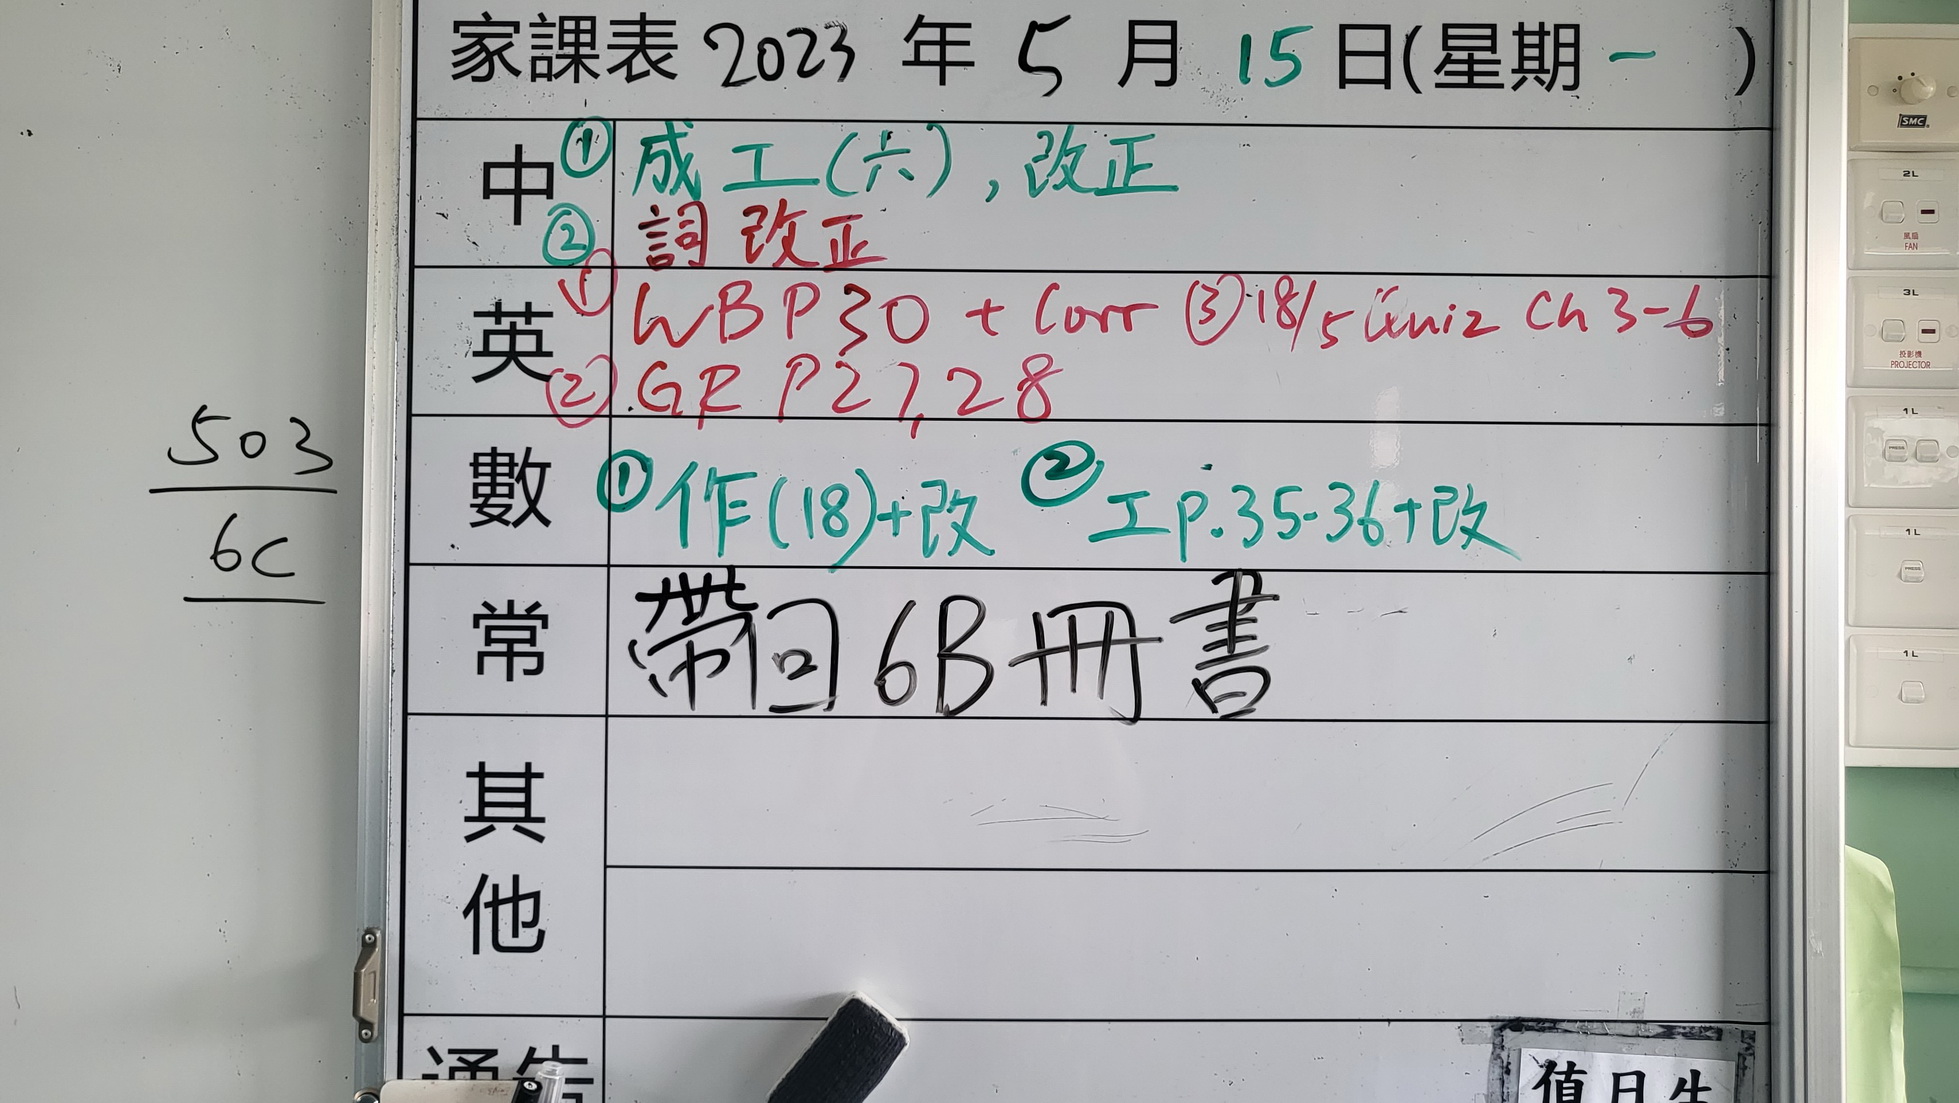 家課表 2023 年 5 月 15 日(星期一 )
中 ① 成工(六), 改正
② 詞改正
英 ① WBP30 + Corr ③ 18/5 Quiz Ch 3-6
② GR P27, 28
數 ① 作(18)+改 ② 工p.35-36+改
常 帶回6B冊書
其他
通告
值日生
503
6C
SMC
2L
風扇
FAN
3L
投影機
PROJECTOR
1L
PRESS
1L
PRESS
1L